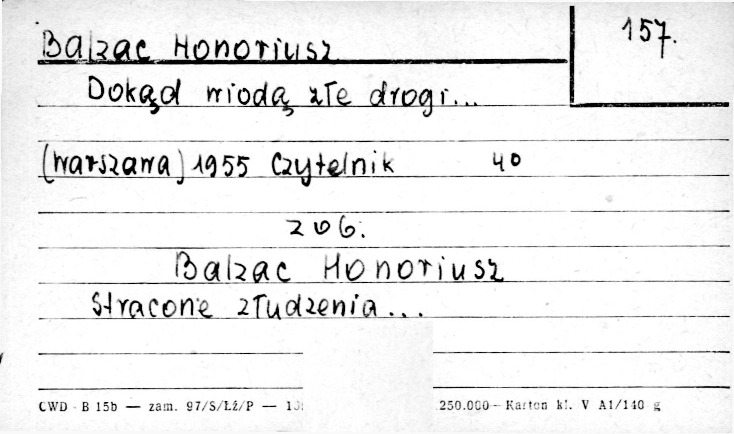 Balzac Honoriusz
157.
Dokąd wiodą złe drogi...
(Warszawa) 1955 Czytelnik 40
zob.
Balzac Honoriusz
Stracone złudzenia...
CWD - B 15b — zam. 97/S/Łź/P — 250.000 - Karton kl. V A1/140 g